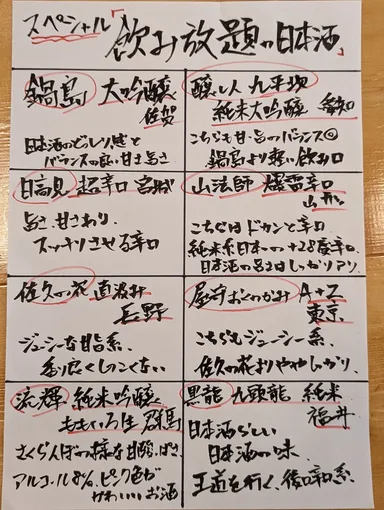 スペシャル「飲み放題の日本酒」
鍋島 大吟醸
佐賀
日本酒のどしり感と
バランスの良い甘さ旨さ
醸し人 九平次
純米大吟醸 愛知
こちらも甘・旨のバランス◎
鍋島より軽い飲み口
日高見 超辛口 宮城
旨さ、甘さあり、
スッキリさせる辛口
山法師 爆雷辛口
山形
こちらはドカンと辛口
純米系日本一の+28度辛口、
日本酒の旨さはしっかりアリ、
佐久の花 直汲み
長野
ジューシーな甘旨系、
香り広くしつこくない
屋守 おくのかみ
東京
こちらもジューシー系、
佐久の花よりややしっかり、
流輝 純米吟醸
ももいろ生 群馬
さくらんぼの様な甘酸っぱさ
アルコール8%、ピンク色が
かわいいお酒
黒龍 九頭龍 純米
福井
日本酒らしい
日本酒の味、
王道を行く、後口辛系